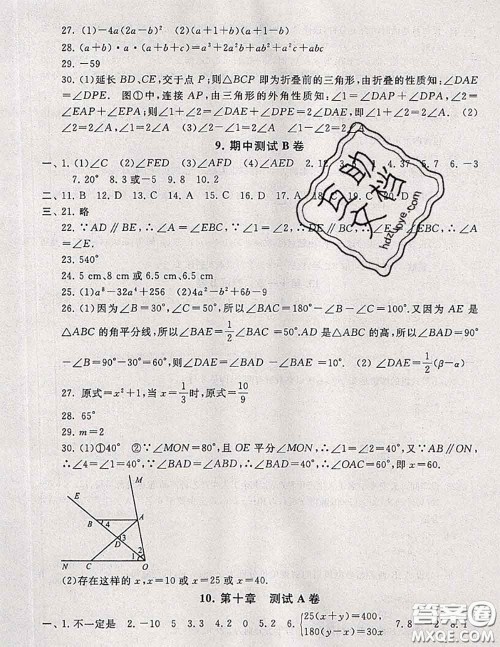 27. (1)-4a(2a-b)² (2)(a+1)²(a-1)²
28. (a+b)·a·(a+b+c)=a³+2a²b+a²c+ab²+abc
29. -59
30. (1)延长BD、CE,交于点P;则△BCP即为折叠前的三角形,由折叠的性质知:∠DAE
=∠DPE. 图①中,连接AP,由三角形的外角性质知:∠1=∠DAP+∠DPA,∠2=
∠EAP+∠EPA;则∠1+∠2=∠DAE+∠DPE=2∠DAE=2∠A,即∠1+∠2=2∠A;
②∠2=2∠A (2)∠2=2∠A+∠1
9. 期中测试B卷
一、1. (1)∠C (2)∠FED (3)∠AFD (4)∠AED 2. 15 6. -3
7. 20° 8. 3或-5 9. 8 10. 2
二、11. B 12. D 13. D 14. A 15. B 16. C 17. D 18. C
三、21. 略
22. ∵AD∥BE,∴∠A=∠EBC. 又∵∠1=∠2,∴DE∥AC,
∠E.
23. 540°
24. 5 cm、8 cm或6.5 cm、6.5 cm
25. (1)a⁸-32a⁴+256 (2)4a²-b²+6b-9
26. (1)因为∠B=30°,∠C=50°,所以∠BAC=180°-∠B-∠C=100°.又因为AE是
△ABC的角平分线,所以∠BAE=1/2∠BAC=50°.AD是△ABC的高,所以∠BAD=90°
-∠B=90°-30°=60°,则∠DAE=∠BAD-∠BAE=10°. (2) ∠DAE=1/2(β-α)
27. 原式=x²+1,当x=1/3时,原式=10/9
28. 65°
29. m=2
30. (1)①40° ②∵∠MON=80°,且OE平分∠MON,∴∠1=∠2=40°,又∵AB∥ON,∴
∠4=∠1=40°,∵∠BAD=∠ABD=40°,∴∠BAD=40°,∴∠OAC=60°,即x=60.
M
E
B
4
A
3
D
2
1
N
C
O
(2)存在这样的x,x=10或x=25或x=40.
10. 第十章 测试A卷
一、1. 不一定是 2. -10 5 3. 3 4. 2 0 5. 2 6. {25(x+y)=400, 180(y-x)=30 7. 8
互助文档
hdzuoye.com
答案圈
MXQE.COM